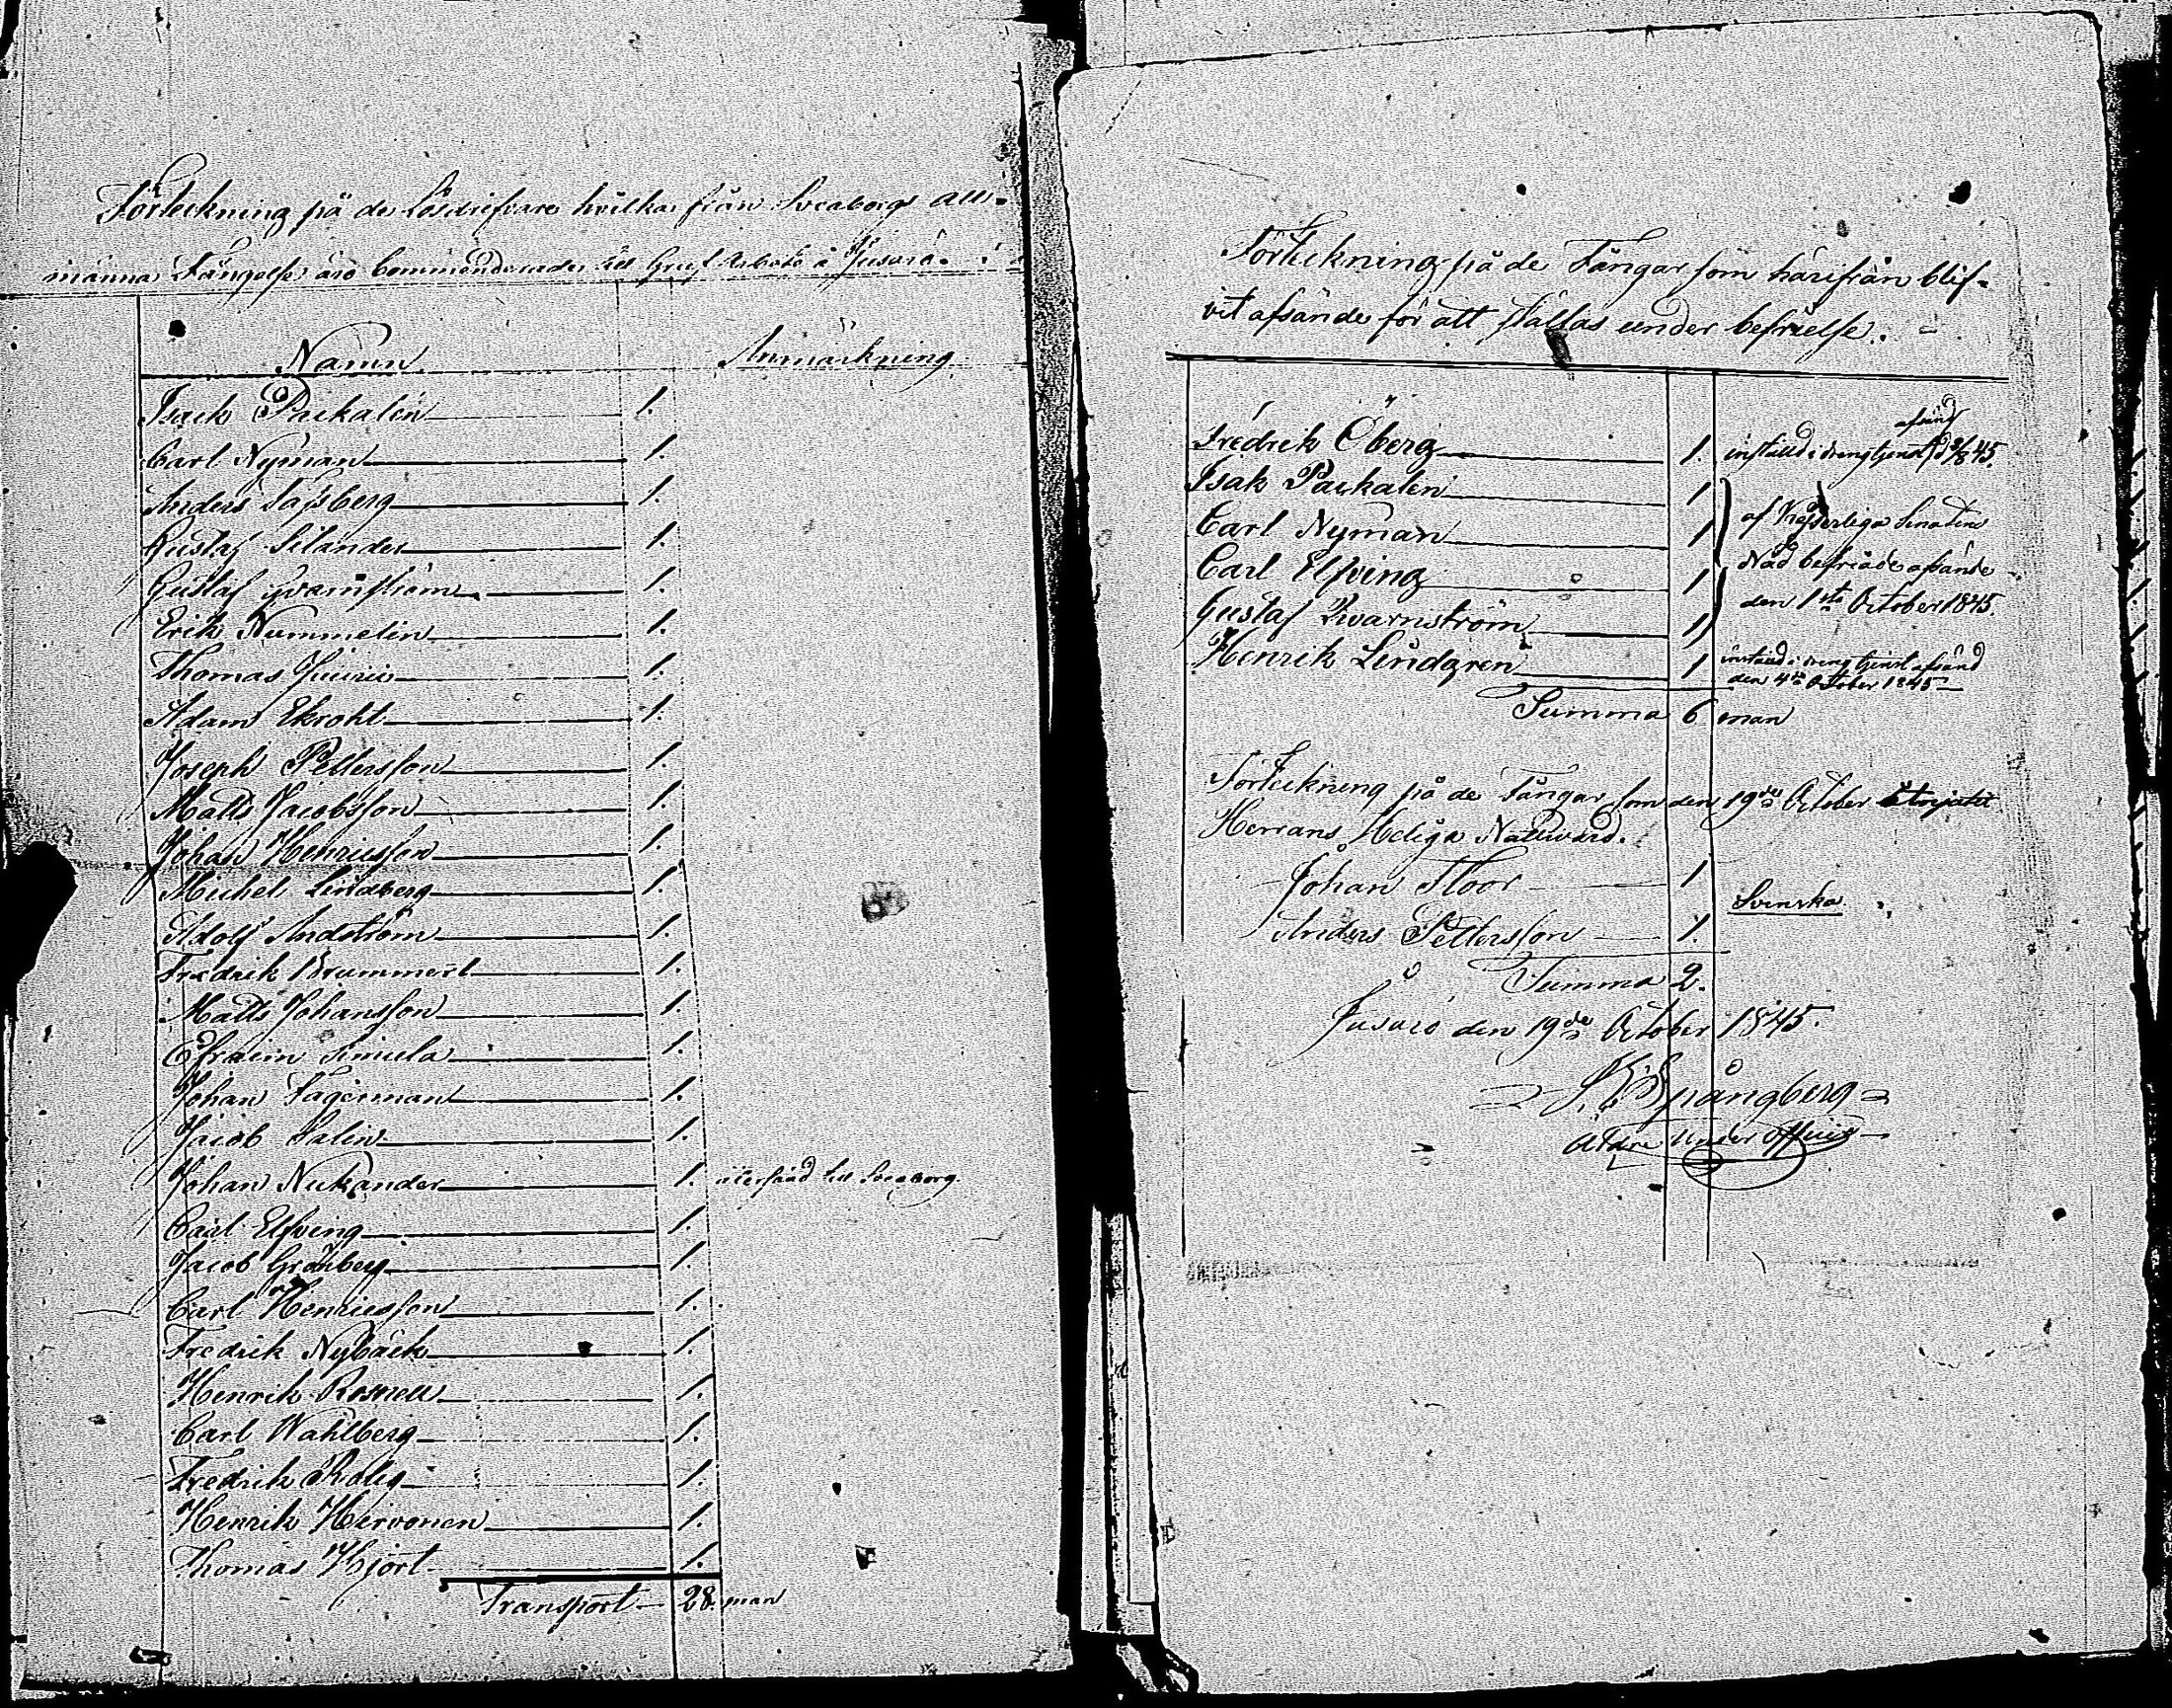 Förteckning på de Lösdrifvare hvilka från Sveaborgs all-
männa Fängelse äro Commenderade till Gruf Arbete å Jusarö.
Namn Anmärkning
Isack Packalén 1.
Carl Nyman 1.
Anders Tafsberg 1.
Gustaf Silander 1.
Gustaf Qvarnström 1.
Erik Nummelin 1.
Thomas 1.
Adam Ekroht 1.
Joseph Pettersson 1.
Matts Jacobsson 1.
Johan Henricsson 1.
Michel Lindberg 1.
Adolf Andström 1.
Fredrik Brummert 1.
Matts Johansson 1.
Efraim Simula 1.
Johan Fagerman 1.
Jacob Salin 1.
Johan Nukander 1. återsänd till Sveaborg.
Carl Elfving 1.
Jacob Grönberg 1.
Carl Henricsson 1.
Fredrik Nybäck 1.
Henrik Rosnell 1.
Carl Wahlberg 1.
Fredrik Rolig 1.
Henrik Hirvonen 1.
Thomas Hjort 1.
Transport 28. man
Förteckning på de Fångar som härifrån blif-
vit afsände för att ställas under befrielse.
afsänd
Fredrik Öberg 1. inställd i drengtjenst d 9/8 45.
Isak Packalen 1
af Kejserliga Senatens
Carl Nyman 1
Nåd befriade afsände
Carl Elfving 1
den 1sta October 1845.
Gustaf Qvarnström 1
Henrik Lindgren 1 inställd i drengtjenst afsänd
den 4de October 1845
Summa 6 man
Förteckning på de Fångar som den 19de October
Herrans Heliga Nattvard.
Johan Floor 1
Svenska
Anders Pettersson 1.
Summa 2.
Jusarö den 19de October 1845.
Spångberg
Äldre Under Officer